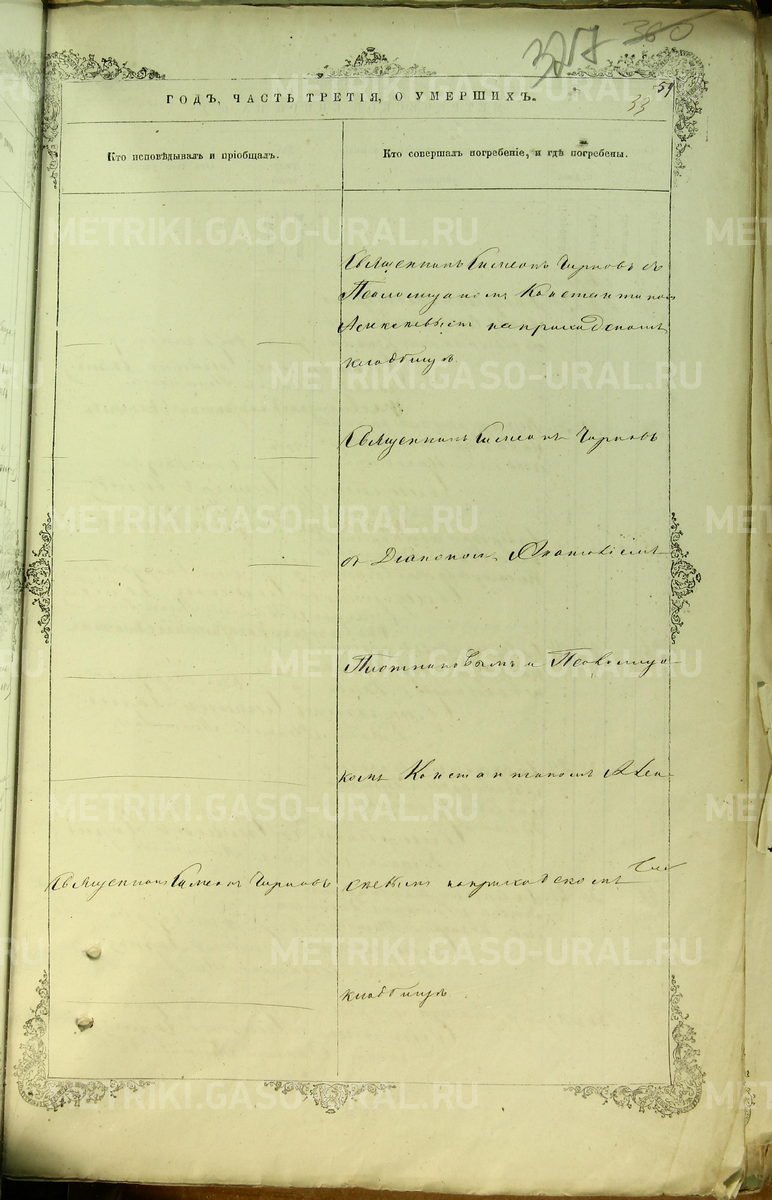 317 360
59
33
ГОДЪ, ЧАСТЬ ТРЕТІЯ, О УМЕРШИХЪ.
Кто исповѣдывалъ и пріобщалъ.
Кто совершалъ погребеніе, и гдѣ погребены.
Священникъ Симеонъ Чирковъ съ
Псаломщикомъ Константиномъ
на приходскомъ
кладбищѣ
Священникъ Симеонъ Чирковъ
съ Діакономъ
Плотниковымъ и Псаломщи-
комъ Константиномъ
Священникъ Симеонъ Чирковъ
на приходскомъ
кладбищѣ
METRIKI.GASO-URAL.RU